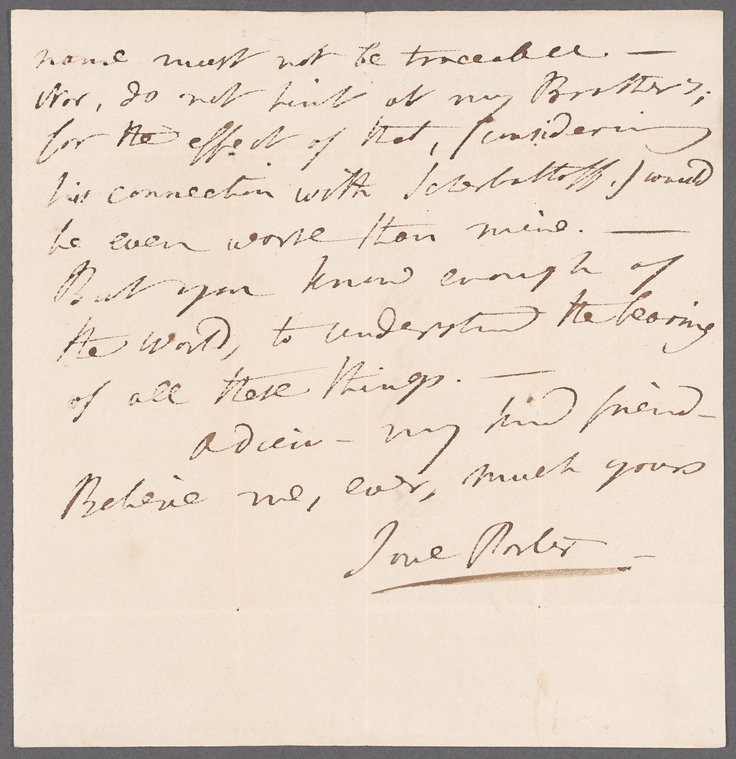 name must not be traceable. —
Nor, do not hint at my Brother's;
for the effect of that, (considering
his connection with Scherbattoff,) would
be even worse than mine. —
But you know enough of
the World, to understand the bearing
of all these things. —
Adieu — my kind friend —
Believe me, ever, much yours
Jane Porter —